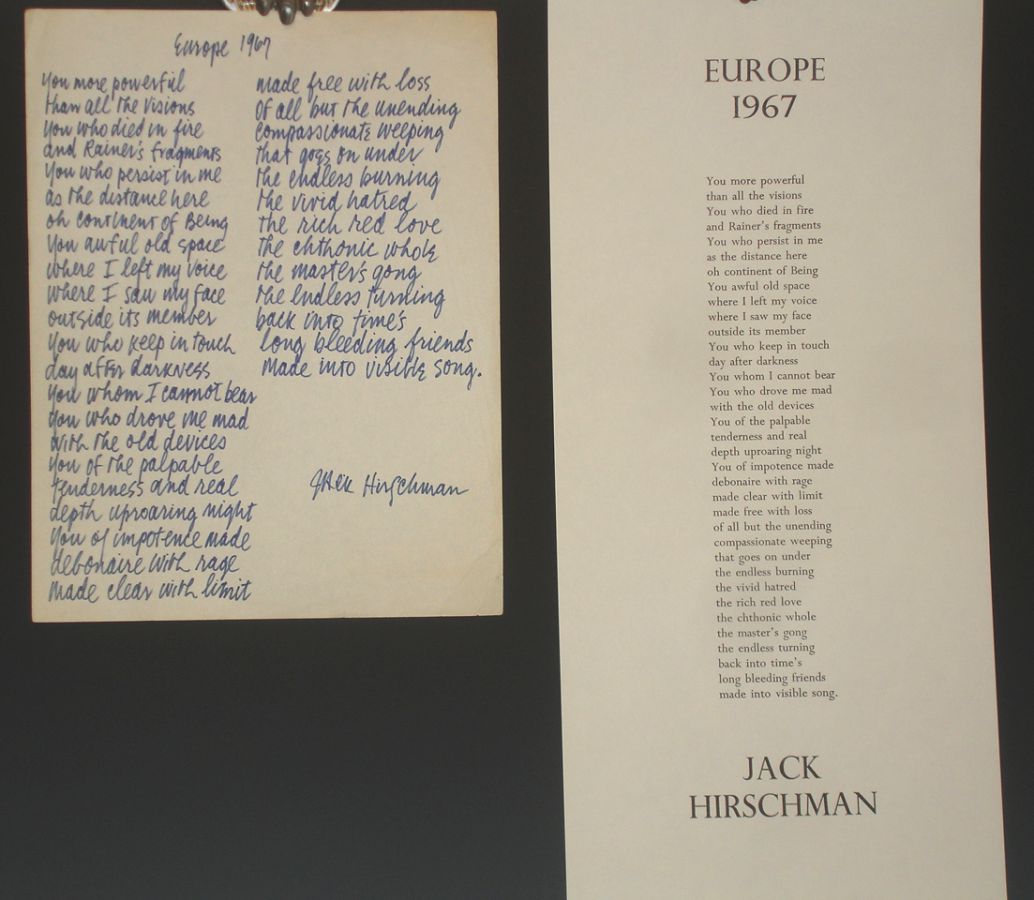 Europe 1967
You more powerful
than all the visions
You who died in fire
and Rainer's fragments
You who persist in me
as the distance here
oh continent of Being
You awful old space
where I left my voice
where I saw my face
outside its member
You who keep in touch
day after darkness
You whom I cannot bear
You who drove me mad
with the old devices
You of the palpable
tenderness and real
depth uproaring night
You of impotence made
debonaire with rage
made clear with limit
made free with loss
Of all but the unending
compassionate weeping
that goes on under
the endless burning
the vivid hatred
the rich red love
the chthonic whole
the master's gong
the endless turning
back into time's
long bleeding friends
made into visible song.
Jack Hirschman
EUROPE
1967
You more powerful
than all the visions
You who died in fire
and Rainer's fragments
You who persist in me
as the distance here
oh continent of Being
You awful old space
where I left my voice
where I saw my face
outside its member
You who keep in touch
day after darkness
You whom I cannot bear
You who drove me mad
with the old devices
You of the palpable
tenderness and real
depth uproaring night
You of impotence made
debonaire with rage
made clear with limit
made free with loss
of all but the unending
compassionate weeping
that goes on under
the endless burning
the vivid hatred
the rich red love
the chthonic whole
the master's gong
the endless turning
back into time's
long bleeding friends
made into visible song.
JACK
HIRSCHMAN